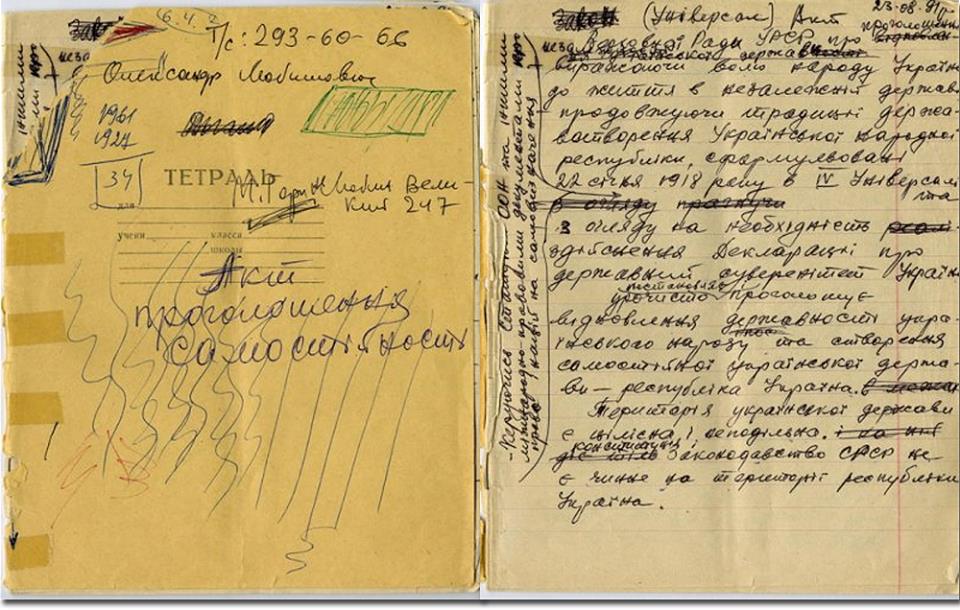 Т/с: 293-60-66
Олександр
1961
1927
34
ТЕТРАДЬ
М. Горь
Вели-
кий 247
для
учени
класса
школы
Акт
проголошення
самостійності
23-08-91р.
Закон (Універсал) Акт
проголошення
Верховної Ради УРСР про
української держав
виражаючи волю народу Україн
до життя в незалежній державі
продовжуючи традиції держа-
вотворення Української народної
республіки, сформульовані
22 січня 1918 року в IV Універсалі
та
з огляду на необхідність
здійснення Декларації про
державний суверенітет Україн
урочисто проголошує
відновлення державності укра-
їнського народу та створення
самостійної української держа-
ви — республіка Україна.
Територія української держави
є цілісна і неподільна.
конституції,
законодавство СРСР не
є чинне на території республіки
Україна.
- Керуючись Статутом ООН та іншими
міжнародно-правовими документами про
право націй на самовизначення